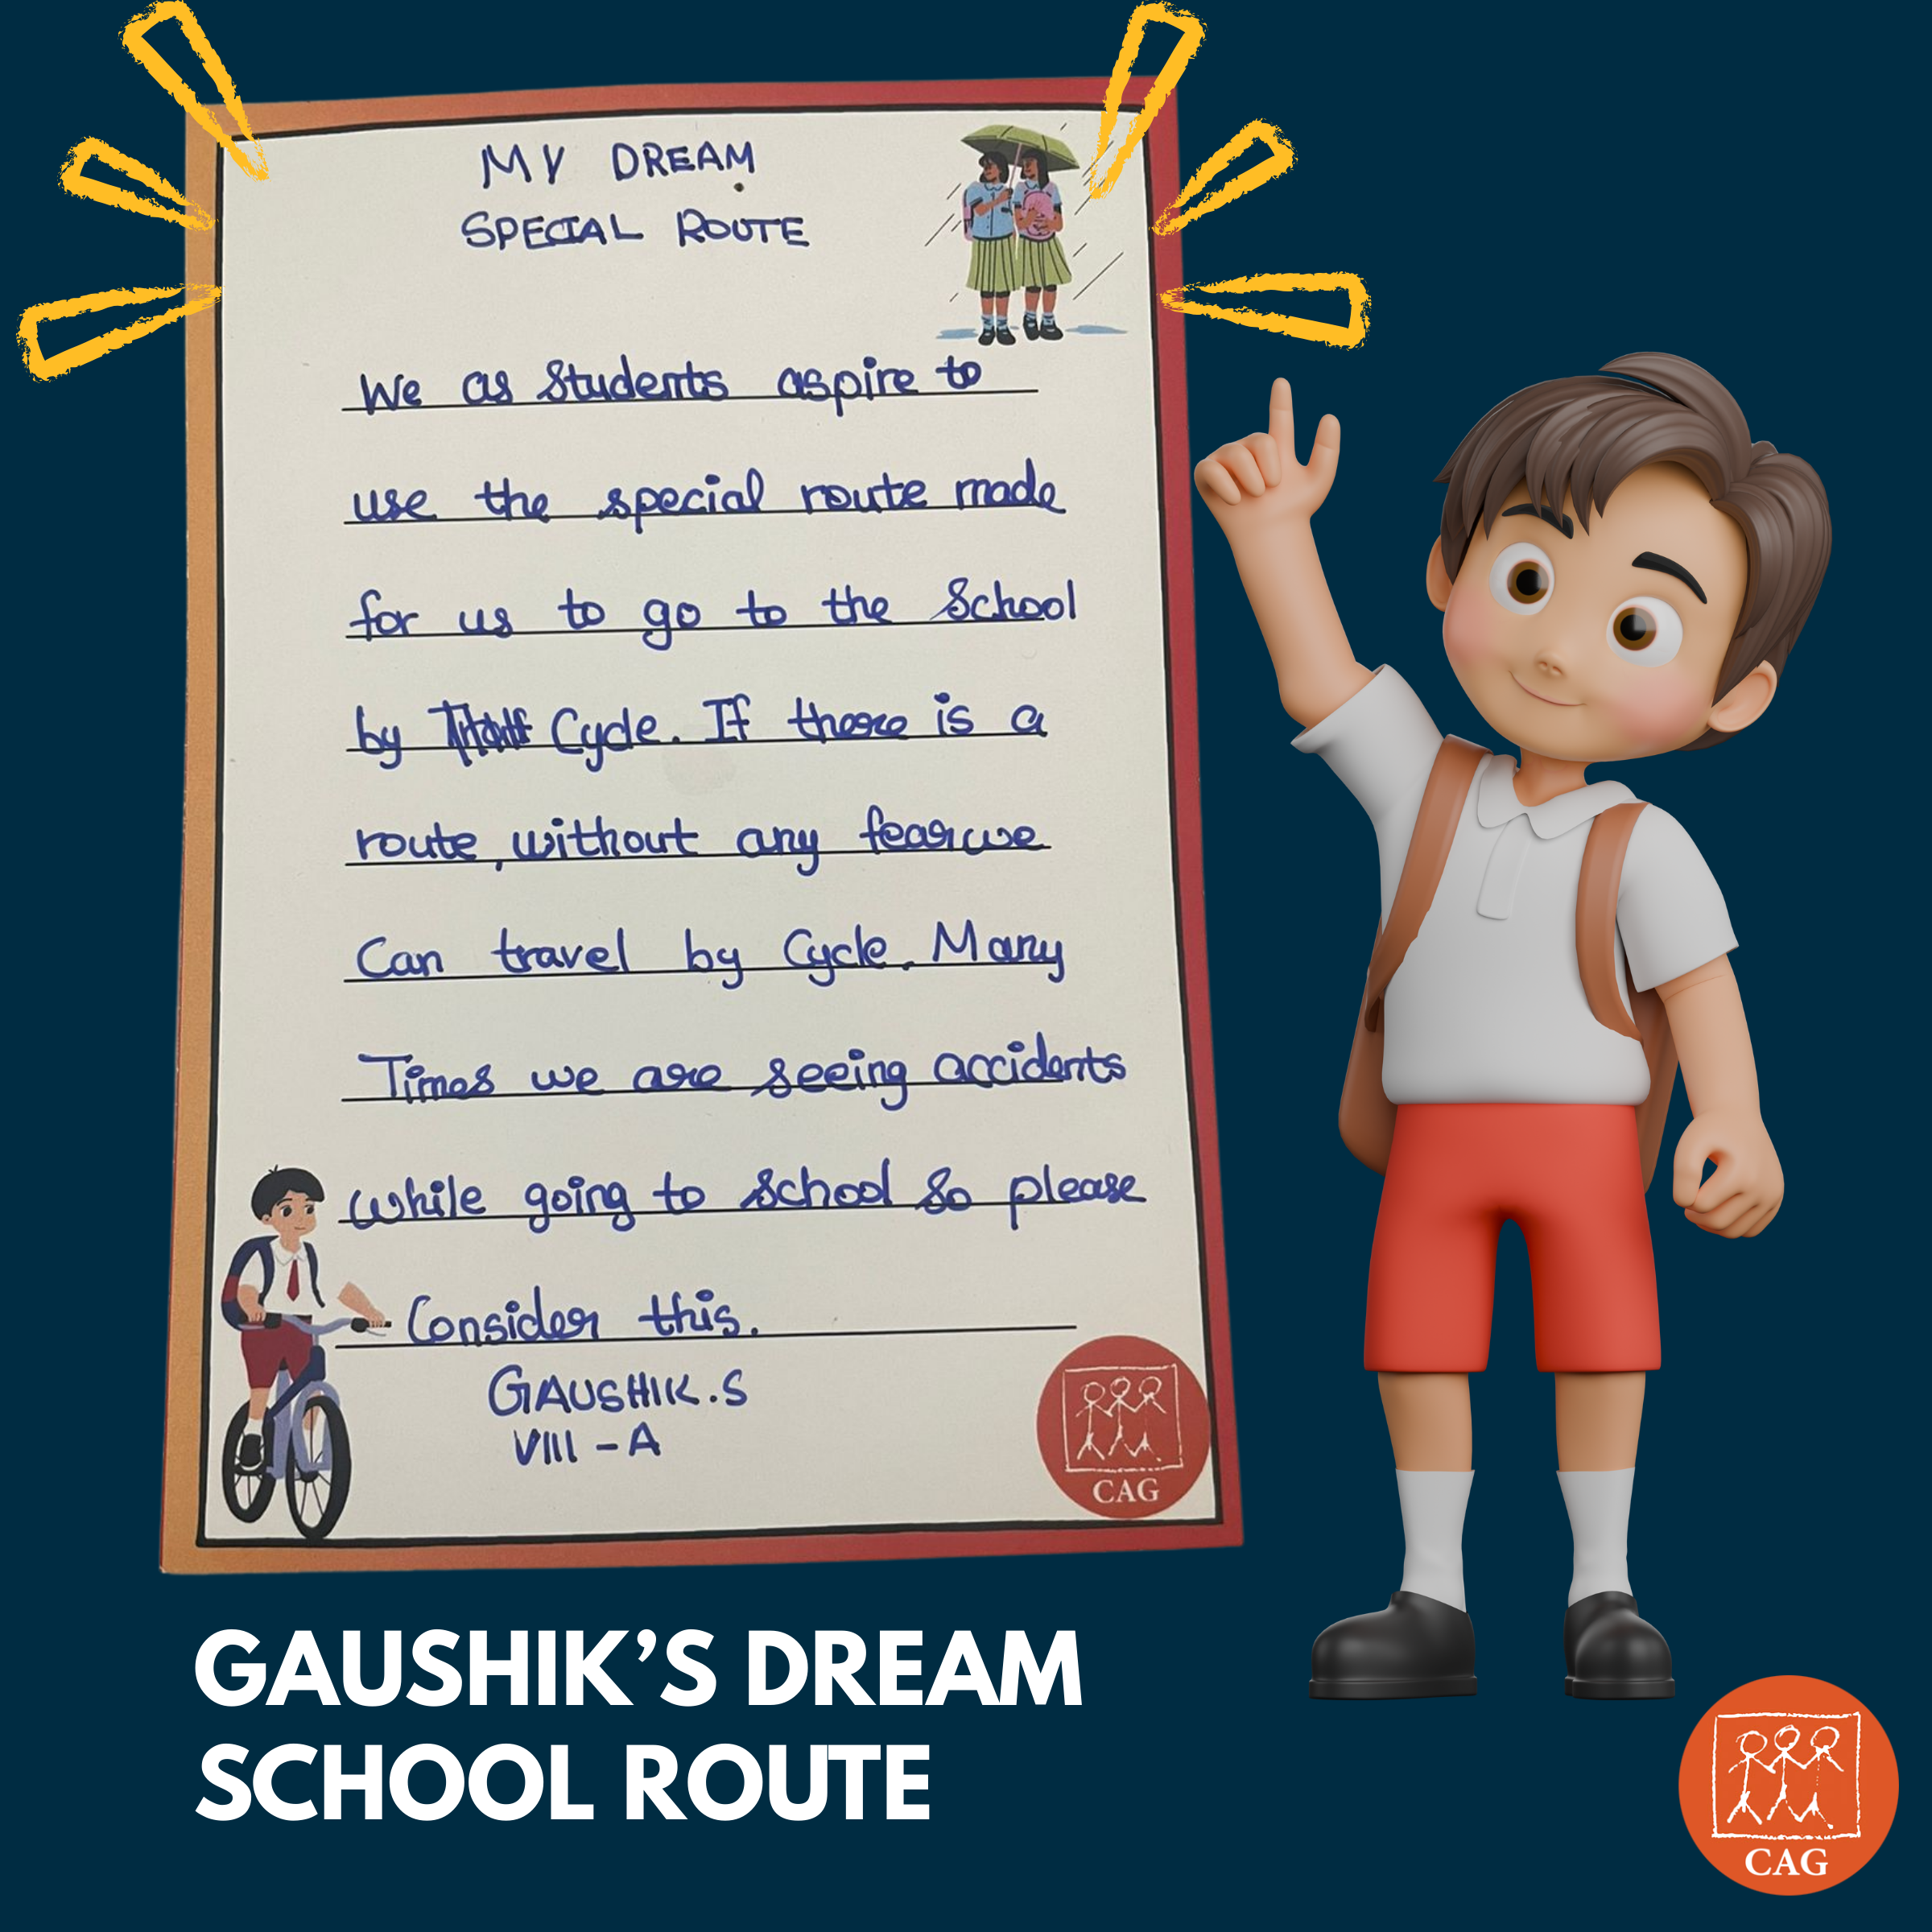 MY DREAM
SPECIAL ROUTE
We as students aspire to
use the special route made
for us to go to the School
by Cycle. If there is a
route, without any fear we
Can travel by Cycle. Many
Times we are seeing accidents
while going to school so please
Consider this.
GAUSHIK.S
VIII - A
CAG
GAUSHIK’S DREAM
SCHOOL ROUTE
CAG